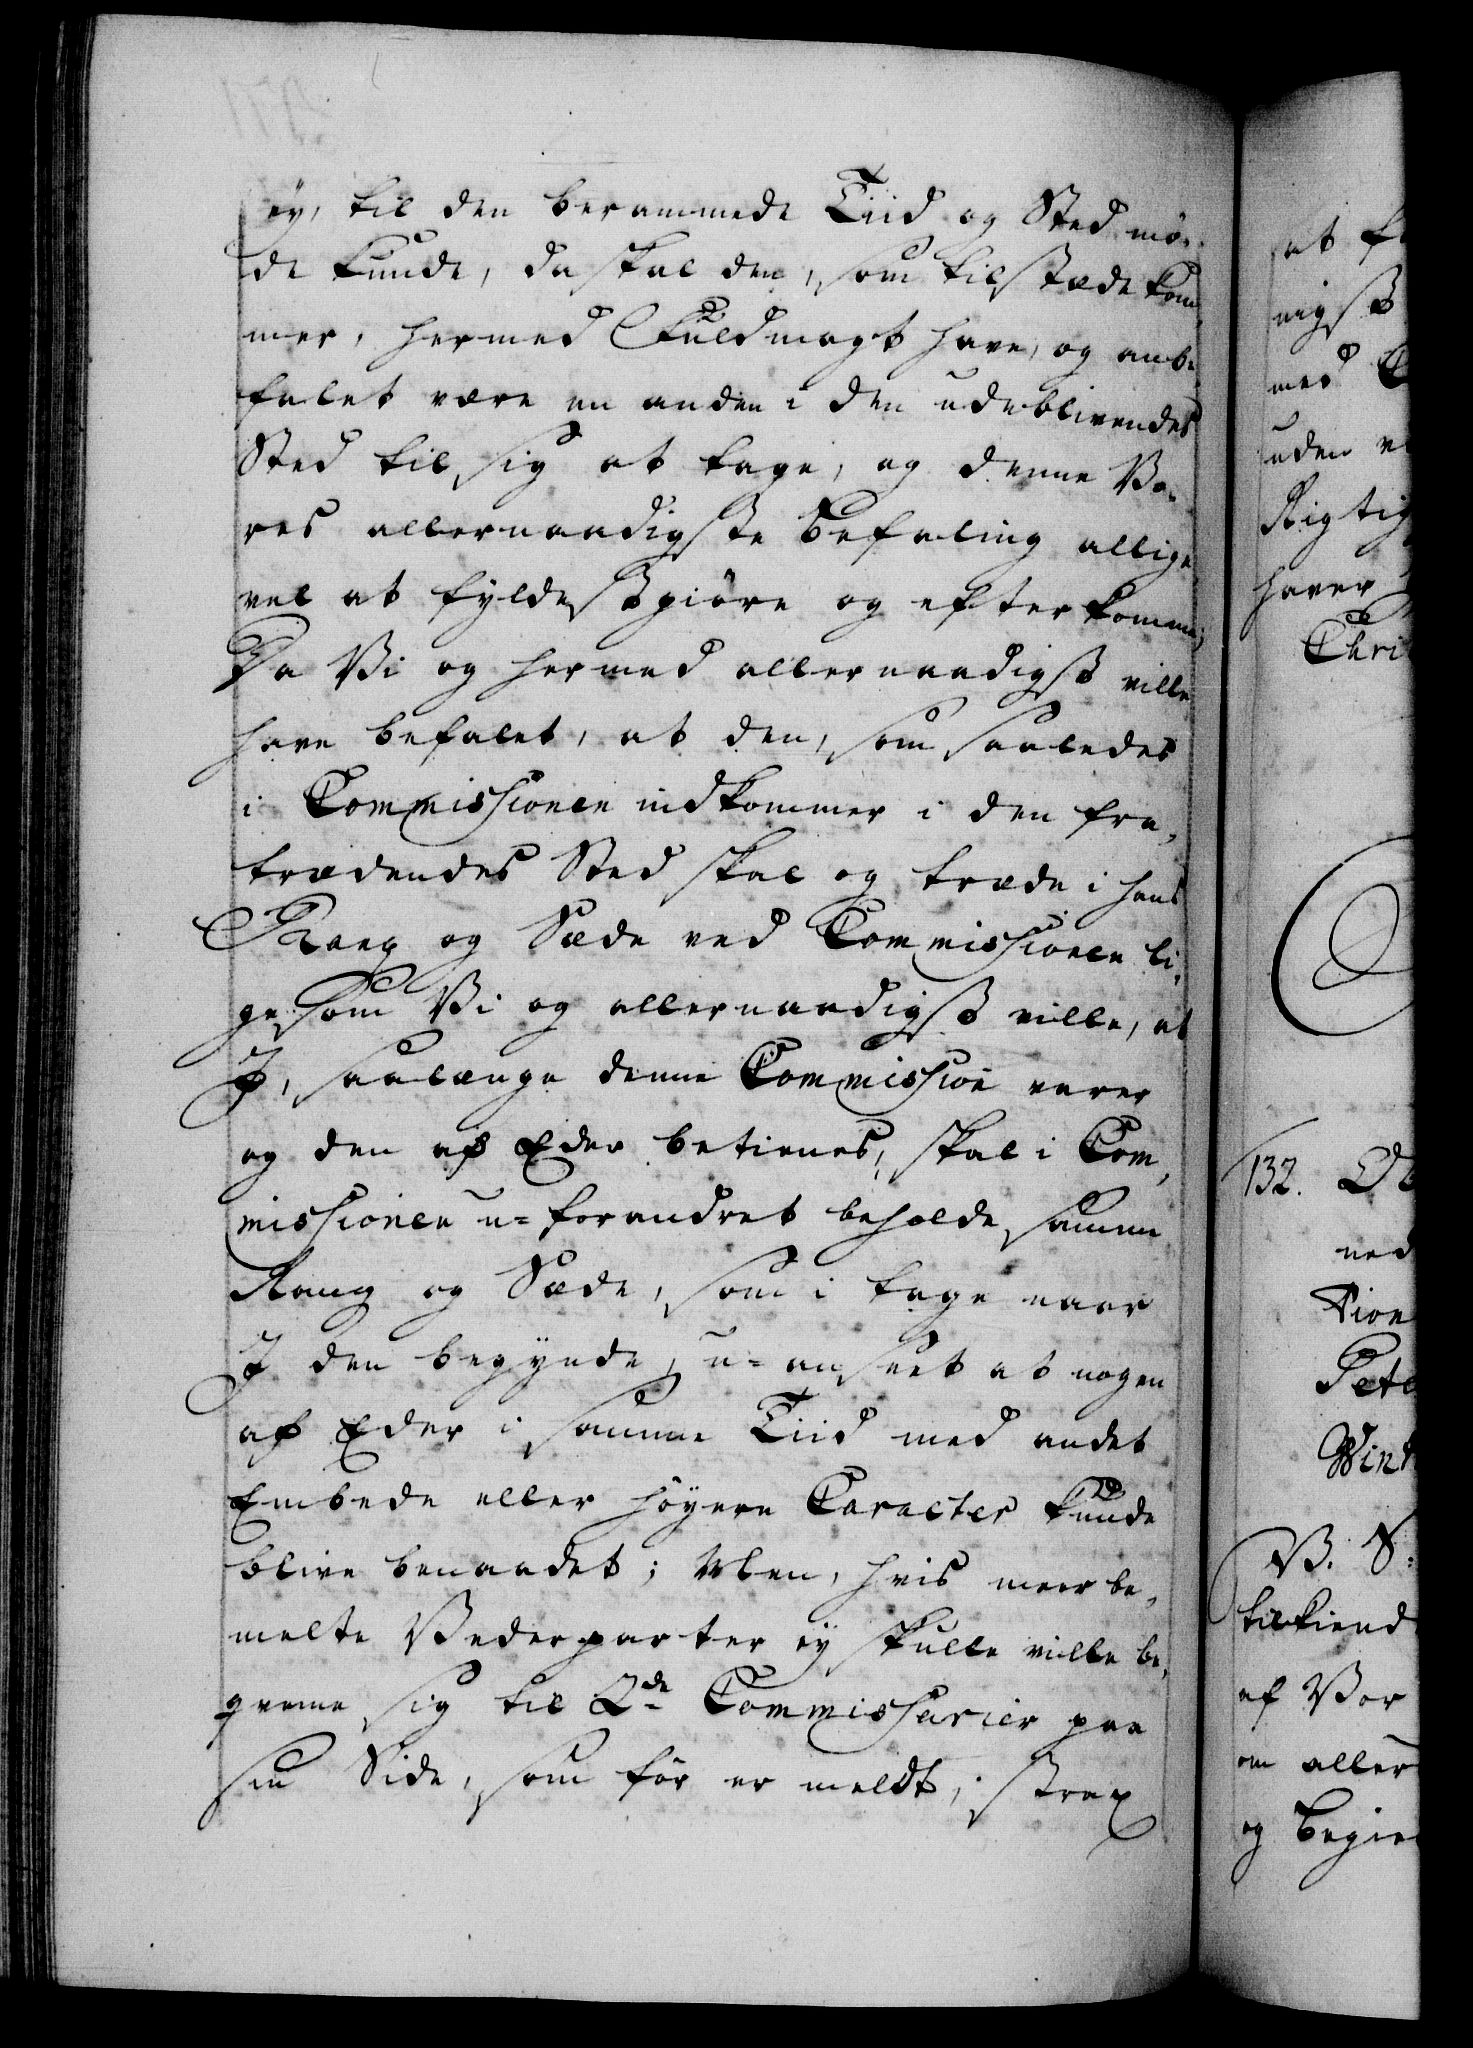 ey, til den berammede Tiid og Sted mø-
de kunde, da skal den, som tilstæde kom-
mer, hermed Fuldmagt have, og anbe-
falet være en anden i den udeblivendes
Sted til sig at tage, og denne Vo-
res allernaadigste Befaling allige-
vel at fyldestgiøre og efterkomme;
Da Vi og hermed allernaadigst ville
have befalet, at den, som saaledes
i Commissionen indkommer i den fra-
trædendes Sted skal og træde i hans
Rang og Sæde ved Commissionen li-
gesom Vi og allernaadigst ville, at
I, saalænge denne Commission varer
og den af Eder betienes, skal i Com-
missionen u=forandret beholde samme
Rang og Sæde, som i tage naar
I den begynde, u=anseet at nogen
af Eder i samme Tiid med andet
Embede eller høyere Caracter kunde
blive benaadet; Men, hvis meerbe-
melte Vederparter ey skulle ville be-
qveme sig til 2de Commissarier paa
sin Side, som før er meldt, strax
at
nigst
med
uden
Rigtig
haver
Chri
132.
ned
Pete
Wint
V. S:
tilkiend
af Vor
om aller
og Begie